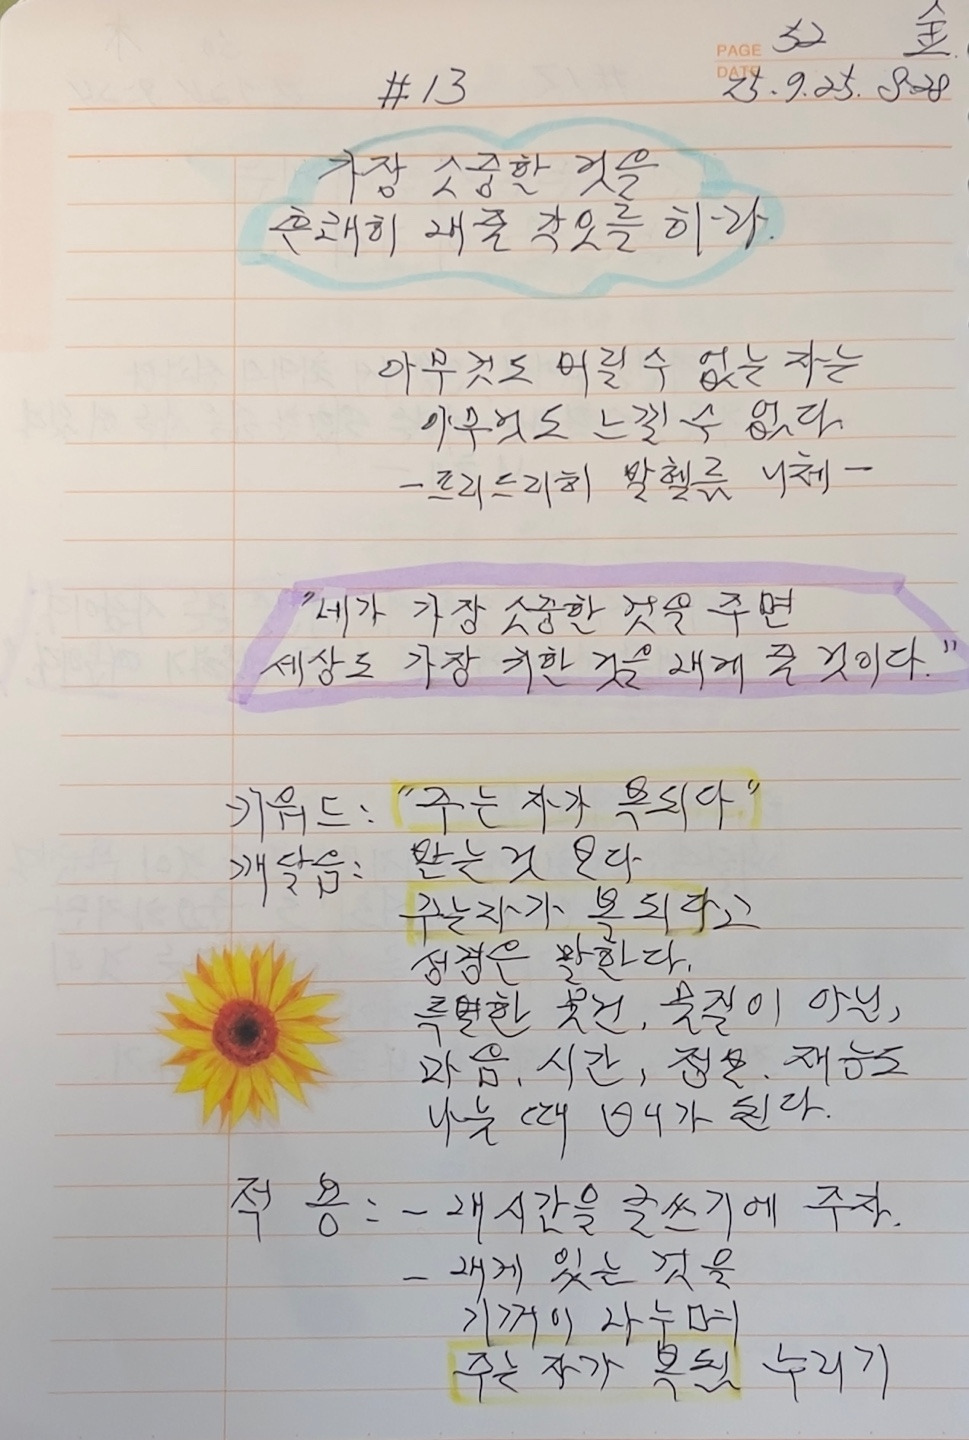 PAGE 32 金
DATE 25.9.25. 8:28
#13
가장 소중한 것을
흔쾌히 내줄 각오를 하라.
아무것도 버릴 수 없는 자는
아무것도 느낄 수 없다
-프리드리히 빌헬름 니체-
"네가 가장 소중한 것을 주면
세상도 가장 귀한 것을 내게 줄 것이다."
키워드: "주는 자가 복되다"
깨달음: 받는것 보다
주는자가 복되다고
성경은 말한다.
특별한 물건, 물질이 아닌,
마음, 시간, 정보, 재능도
나눌 때 가 된다.
적용: - 내시간을 글쓰기에 주자.
- 내게 있는 것을
기꺼이 나누며
주는 자가 복됨 누리기